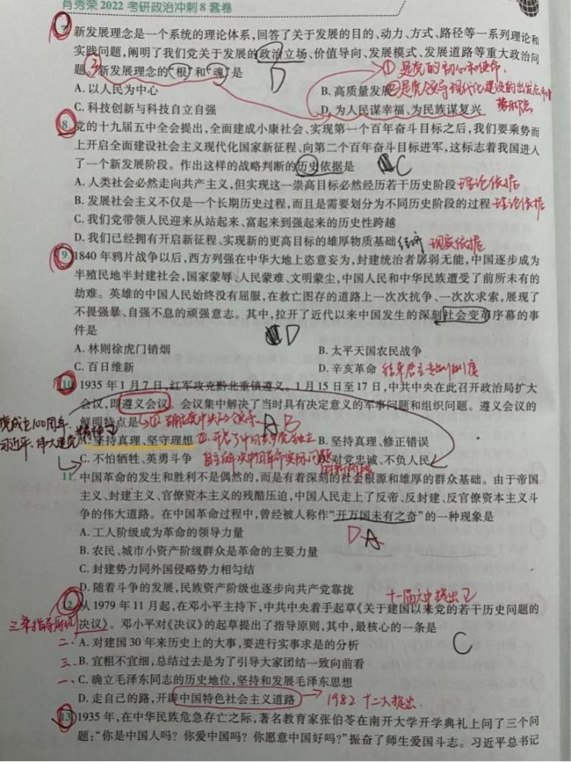 肖秀荣 2022 考研政治冲刺 8 套卷
7. 新发展理念是一个系统的理论体系,回答了关于发展的目的、动力、方式、路径等一系列理论和
实践问题,阐明了我们党关于发展的政治立场、价值导向、发展模式、发展道路等重大政治问
题。新发展理念的“根”和“魂”是
D
① 是党的初心和使命.
A. 以人民为中心
B. 高质量发展
C. 科技创新与科技自立自强
D. 为人民谋幸福、为民族谋复兴
8. 党的十九届五中全会提出,全面建成小康社会、实现第一个百年奋斗目标之后,我们要乘势而
上开启全面建设社会主义现代化国家新征程、向第二个百年奋斗目标进军,这标志着我国进入
了一个新发展阶段。作出这样的战略判断的历史依据是
C
A. 人类社会必然走向共产主义,但实现这一崇高目标必然经历若干历史阶段 理论依据
B. 发展社会主义不仅是一个长期历史过程,而且是需要划分为不同历史阶段的过程 理论依据
C. 我们党带领人民迎来从站起来、富起来到强起来的历史性跨越
D. 我们已经拥有开启新征程、实现新的更高目标的雄厚物质基础 现实依据
9. 1840 年鸦片战争以后,西方列强在中华大地上恣意妄为,封建统治者孱弱无能,中国逐步成为
半殖民地半封建社会,国家蒙辱、人民蒙难、文明蒙尘,中国人民和中华民族遭受了前所未有的
劫难。英雄的中国人民始终没有屈服,在救亡图存的道路上一次次抗争、一次次求索,展现了
不畏强暴、自强不息的顽强意志。其中,拉开了近代以来中国发生的深刻社会变革序幕的事
件是
D
A. 林则徐虎门销烟
B. 太平天国农民战争
C. 百日维新
D. 辛亥革命 结束君主专制制度
10. 1935 年 1 月 7 日,红军攻克黔北重镇遵义。1 月 15 日至 17 日,中共中央在此召开政治局扩大
会议,即遵义会议。会议集中解决了当时具有决定意义的军事问题和组织问题。遵义会议的
鲜明特点是
B
A. 坚持真理、坚守理想
B. 坚持真理、修正错误
C. 不怕牺牲、英勇斗争
D. 对党忠诚、不负人民
11. 中国革命的发生和胜利不是偶然的,而是有着深刻的社会根源和雄厚的群众基础。由于帝国
主义、封建主义、官僚资本主义的残酷压迫,中国人民走上了反帝、反封建、反官僚资本主义斗
争的伟大道路。在中国革命过程中,曾经被人称作“开万国未有之奇”的一种现象是
D A
A. 工人阶级成为革命的领导力量
B. 农民、城市小资产阶级群众是革命的主要力量
C. 封建势力同外国侵略势力相勾结
D. 随着斗争的发展,民族资产阶级也逐步向共产党靠拢
12. 从 1979 年 11 月起,在邓小平主持下,中共中央着手起草《关于建国以来党的若干历史问题的
决议》。邓小平对《决议》的起草提出了指导原则,其中,最核心的一条是
C
二、A. 对建国 30 年来历史上的大事,要进行实事求是的分析
三、B. 宜粗不宜细,总结过去是为了引导大家团结一致向前看
一、C. 确立毛泽东同志的历史地位,坚持和发展毛泽东思想
D. 走自己的路,开辟中国特色社会主义道路 → 1982 十二大提出.
13. 1935 年,在中华民族危急存亡之际,著名教育家张伯苓在南开大学开学典礼上问了三个问
题:“你是中国人吗?你爱中国吗?你愿意中国好吗?”振奋了师生爱国斗志。习近平总书记